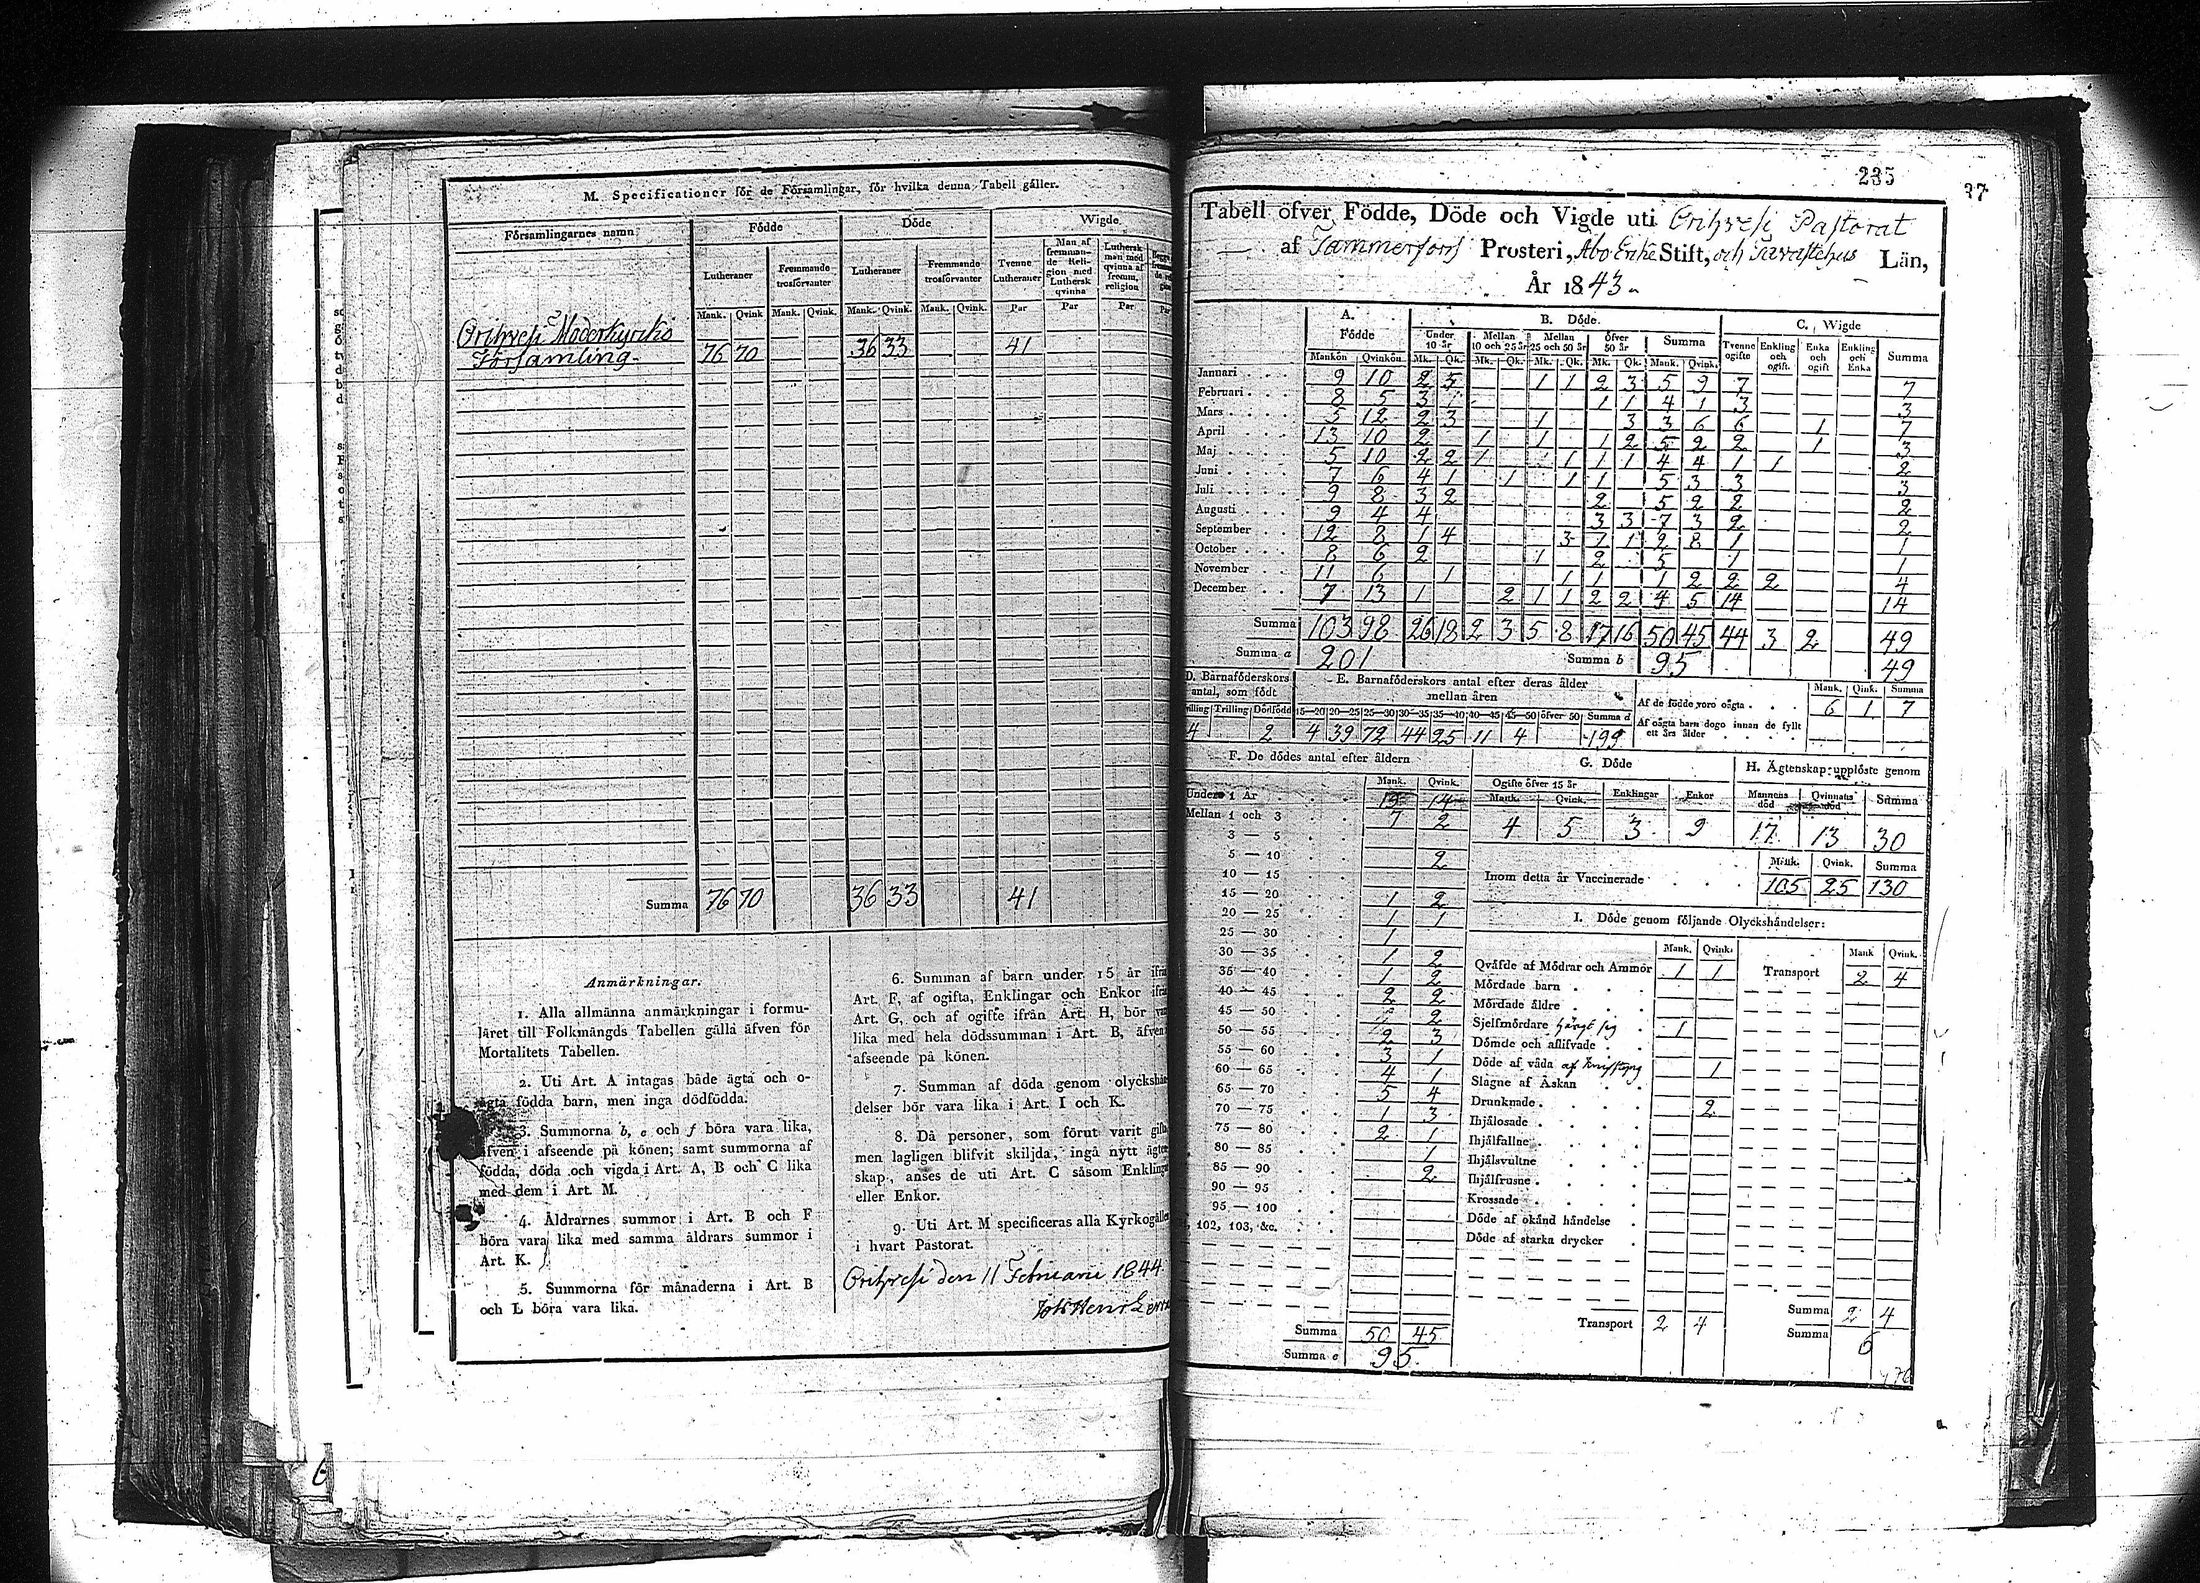 M. Specificationer för de Församlingar, för hvilka denna Tabell gäller.
Församlingarnes namn
Födde
Döde
Wigde
Lutheraner
Fremmande trosförvanter
Lutheraner
Fremmande trosförvanter
Tvenne Lutheraner
Man af fremmande Religion med Luthersk qvinna
Luthersk man med qvinna af fremm. religion
Mank. Qvink Mank. Qvink. Mank. Qvink. Mank. Qvink. Par Par Par
Orihvesi Moderkyrko
Församling 76 70 36 33 41
Summa 76 70 36 33 41
Anmärkningar.
1. Alla allmänna anmärkningar i formu-
läret till Folkmängds Tabellen gälla äfven för
Mortalitets Tabellen.
2. Uti Art. A intagas både ägta och o-
ägta födda barn, men inga dödfödda.
3. Summorna b, e och f böra vara lika,
äfven i afseende på könen; samt summorna af
födda, döda och vigda i Art. A, B och C lika
med dem i Art. M.
4. Åldrarnes summor i Art. B och F
böra vara lika med samma åldrars summor i
Art. K.
5. Summorna för månaderna i Art. B
och L böra vara lika.
6. Summan af barn under 15 år ifrån
Art. F, af ogifta, Enklingar och Enkor ifrån
Art. G, och af ogifte ifrån Art. H, bör vara
lika med hela dödssumman i Art. B, äfven i
afseende på könen.
7. Summan af döda genom olyckshän-
delser bör vara lika i Art. I och K.
8. Då personer, som förut varit gifta,
men lagligen blifvit skiljda, ingå nytt ägten-
skap, anses de uti Art. C såsom Enklingar
eller Enkor.
9. Uti Art. M specificeras alla Kyrkogäller
i hvart Pastorat.
Orihvesi den 11 Februarii 1844
235
37
Tabell öfver Födde, Döde och Vigde uti Orihvesi Pastorat
af Tammerfors Prosteri, Åbo Erke Stift, och Tavastehus Län,
År 1843
A. Födde
B. Döde.
C. Wigde
Under 10 år
Mellan 10 och 25 år
Mellan 25 och 50 år
Öfver 50 år
Summa
Tvenne ogifte
Enkling och ogift.
Enka och ogift
Enkling och Enka
Summa
Mankön Qvinkön Mk. Qk. Mk. Qk. Mk. Qk. Mk. Qk. Mank. Qvink.
Januari 9 10 2 5 1 1 2 3 5 9 7 7
Februari 8 5 3 1 1 4 1 3 3
Mars 5 12 2 3 1 3 3 6 6 1 7
April 13 10 2 1 1 1 2 5 2 2 1 3
Maj 5 10 2 2 1 1 1 1 4 4 1 1 2
Juni 7 6 4 1 1 1 1 5 3 3 3
Juli 9 8 3 2 2 5 2 2 2
Augusti 9 4 4 3 3 7 3 2 2
September 12 8 1 4 3 1 1 2 8 1 1
October 8 6 2 1 2 5 1 1
November 11 6 1 1 1 1 2 2 2 4
December 7 13 1 2 1 1 2 2 4 5 14 14
Summa 103 98 26 18 2 3 5 8 17 16 50 45 44 3 2 49
Summa a 201 Summa b 95 49
D. Barnaföderskors antal, som födt
E. Barnaföderskors antal efter deras ålder mellan åren
Trilling Dödfödd 15—20 20—25 25—30 30—35 35—40 40—45 45—50 öfver 50 Summa d
4 2 4 39 72 44 25 11 4 199
Mank. Qink. Summa
Af de födde voro oägta 6 1 7
Af oägta barn dogo innan de fyllt
ett års ålder
F. De dödes antal efter åldern
Mank. Qvink.
Under 1 År 15 14
Mellan 1 och 3 7 2
3 — 5
5 — 10 2
10 — 15
15 — 20 1 2
20 — 25 1 1
25 — 30 1
30 — 35 1 2
35 — 40 1 2
40 — 45 2 2
45 — 50 2
50 — 55 2 3
55 — 60 3 1
60 — 65 4 1
65 — 70 5 4
70 — 75 1 3
75 — 80 2 1
80 — 85 1
85 — 90 2
90 — 95
95 — 100
102, 103, &c.
Summa 50 45
Summa e 95
G. Döde
Ogifte öfver 15 år
Enklingar
Enkor
Mank. Qvink.
4 5 3 9
H. Ägtenskap upplöste genom
Mannens död
Qvinnans död
Summa
17 13 30
Mank. Qvink. Summa
Inom detta år Vaccinerade 105 25 130
I. Döde genom följande Olyckshändelser:
Mank. Qvink. Mank Qvink.
Qväfde af Mödrar och Ammor 1 1 Transport 2 4
Mördade barn
Mördade äldre
Sjelfmördare hängt sig 1
Dömde och aflifvade
Döde af våda 1
Slagne af Åskan
Drunknade 2
Ihjälosade
Ihjälfallne
Ihjälsvultne
Ihjälfrusne
Krossade
Döde af okänd händelse
Döde af starka drycker
Transport 2 4
Summa 2 4
Summa 6